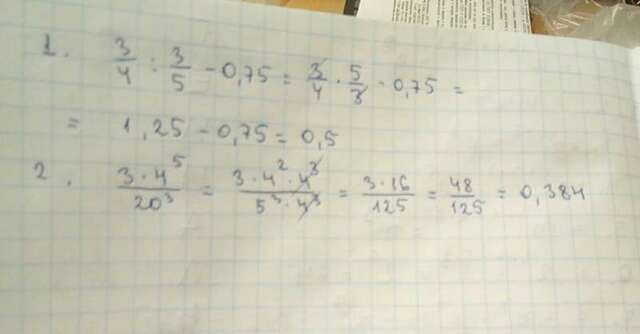 1. 3/4 : 3/5 - 0,75 = 3/4 · 5/3 - 0,75 =
= 1,25 - 0,75 = 0,5
2. 3·4⁵/20³ = 3·4²·4³/5³·4³ = 3·16/125 = 48/125 = 0,384